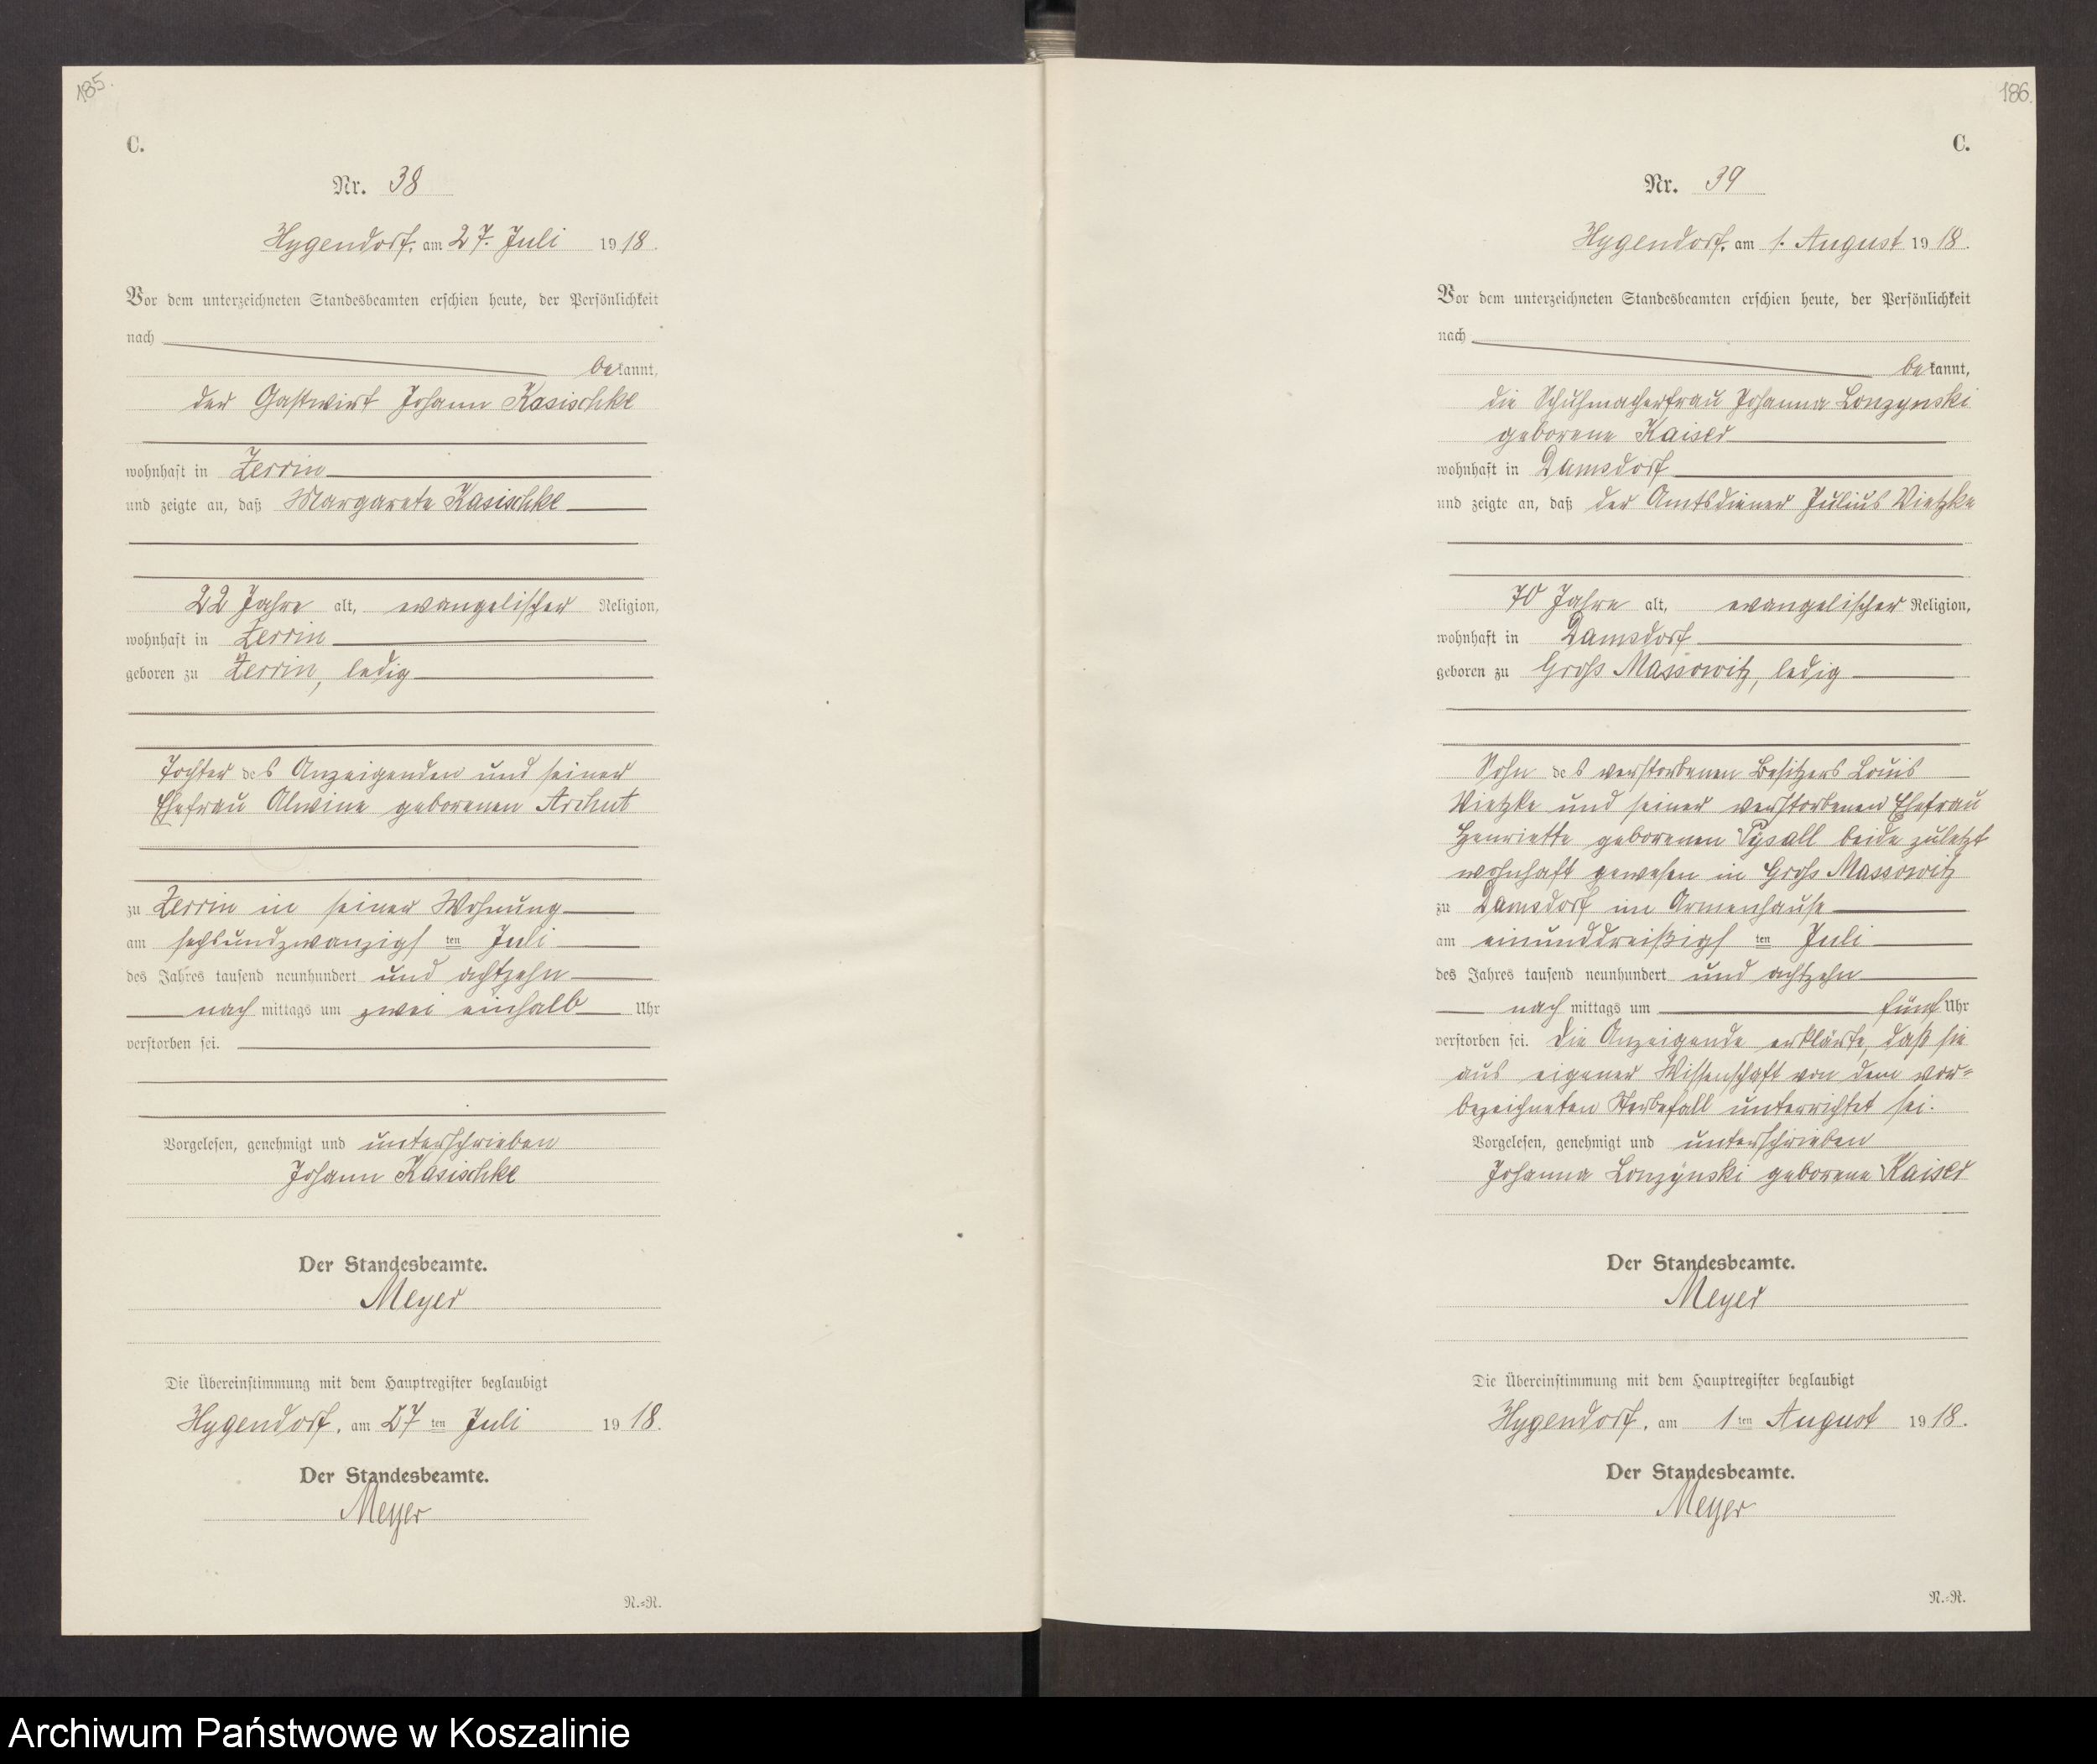 185.
C.
Nr. 38
Hygendorf, am 27. Juli 1918.
Vor dem unterzeichneten Standesbeamten erschien heute, der Persönlichkeit
nach
bekannt,
der Gastwirt Johann Kasischke
wohnhaft in Zerrin
und zeigte an, daß Margarete Kasischke
22 Jahre alt, evangelischer Religion,
wohnhaft in Zerrin
geboren zu Zerrin, ledig
Tochter des Anzeigenden und seiner
Ehefrau Alwine geborenen Archut
zu Zerrin in seiner Wohnung
am sechsundzwanzigsten Juli
des Jahres tausend neunhundert und achtzehn
nachmittags um zwei einhalb Uhr
verstorben sei.
Vorgelesen, genehmigt und unterschrieben
Johann Kasischke
Der Standesbeamte.
Meyer
Die Übereinstimmung mit dem Hauptregister beglaubigt
Hygendorf, am 27ten Juli 1918.
Der Standesbeamte.
Meyer
N.=R.
186.
C.
Nr. 39
Hygendorf, am 1. August 1918.
Vor dem unterzeichneten Standesbeamten erschien heute, der Persönlichkeit
nach
bekannt,
die Schuhmacherfrau Johanna Lonzynski
geborene Kaiser
wohnhaft in Damsdorf
und zeigte an, daß der Amtsdiener Julius Vietzke
70 Jahre alt, evangelischer Religion,
wohnhaft in Damsdorf
geboren zu Groß Massowitz, ledig
Sohn des verstorbenen Besitzers Louis
Vietzke und seiner verstorbenen Ehefrau
Henriette geborenen Pysall beide zuletzt
wohnhaft gewesen in Groß Massowitz
zu Damsdorf im Armenhause
am einunddreißigsten Juli
des Jahres tausend neunhundert und achtzehn
nachmittags um fünf Uhr
verstorben sei. Die Anzeigende erklärte, daß sie
aus eigener Wissenschaft von dem vor=
bezeichneten Sterbefall unterrichtet sei.
Vorgelesen, genehmigt und unterschrieben
Johanna Lonzynski geborene Kaiser
Der Standesbeamte.
Meyer
Die Übereinstimmung mit dem Hauptregister beglaubigt
Hygendorf, am 1ten August 1918.
Der Standesbeamte.
Meyer
N.=R.
Archiwum Państwowe w Koszalinie